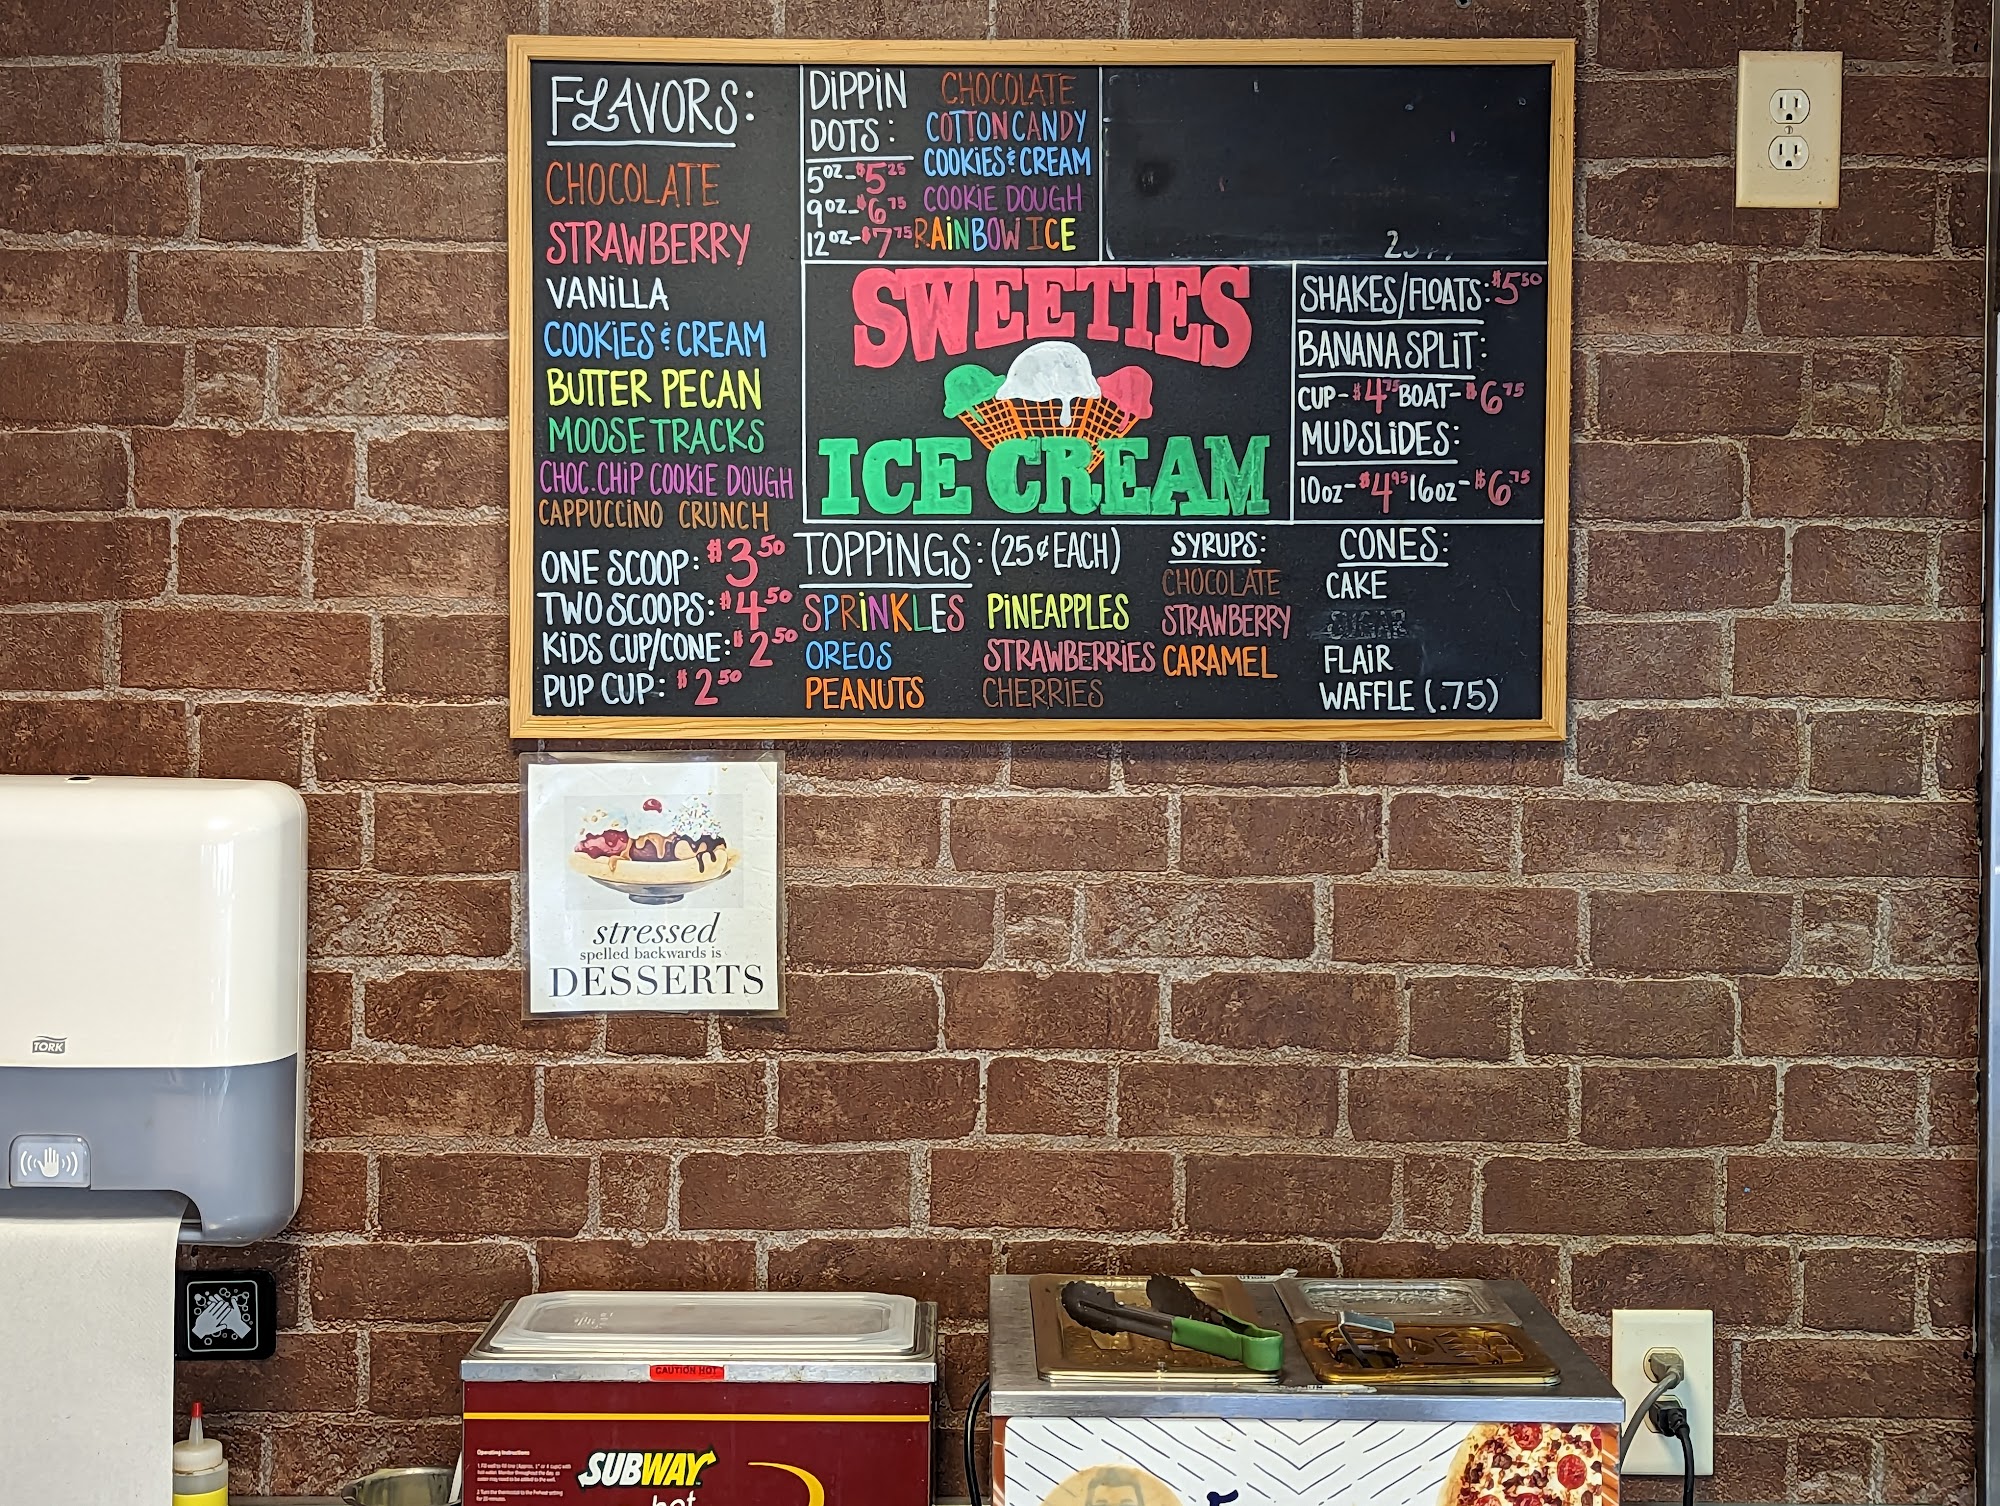 FLAVORS:
CHOCOLATE
STRAWBERRY
VANILLA
COOKIES & CREAM
BUTTER PECAN
MOOSE TRACKS
CHOC. CHIP COOKIE DOUGH
CAPPUCCINO CRUNCH
ONE SCOOP: $3.50
TWO SCOOPS: $4.50
KIDS CUP/CONE: $2.50
PUP CUP: $2.50
DIPPIN
DOTS:
5oz-$5.25
9oz-$6.75
12oz-$7.75
CHOCOLATE
COTTON CANDY
COOKIES & CREAM
COOKIE DOUGH
RAINBOW ICE
SWEETIES
ICE CREAM
SHAKES/FLOATS: $5.50
BANANA SPLIT:
CUP-$4.75 BOAT-$6.75
MUDSLIDES:
10oz-$4.95 16oz-$6.75
TOPPINGS: (25¢ EACH)
SPRINKLES
OREOS
PEANUTS
PINEAPPLES
STRAWBERRIES
CHERRIES
SYRUPS:
CHOCOLATE
STRAWBERRY
CARAMEL
CONES:
CAKE
SUGAR
FLAIR
WAFFLE (.75)
stressed
spelled backwards is
DESSERTS
TORK
CAUTION HOT
Operating Instructions
SUBWAY
hot